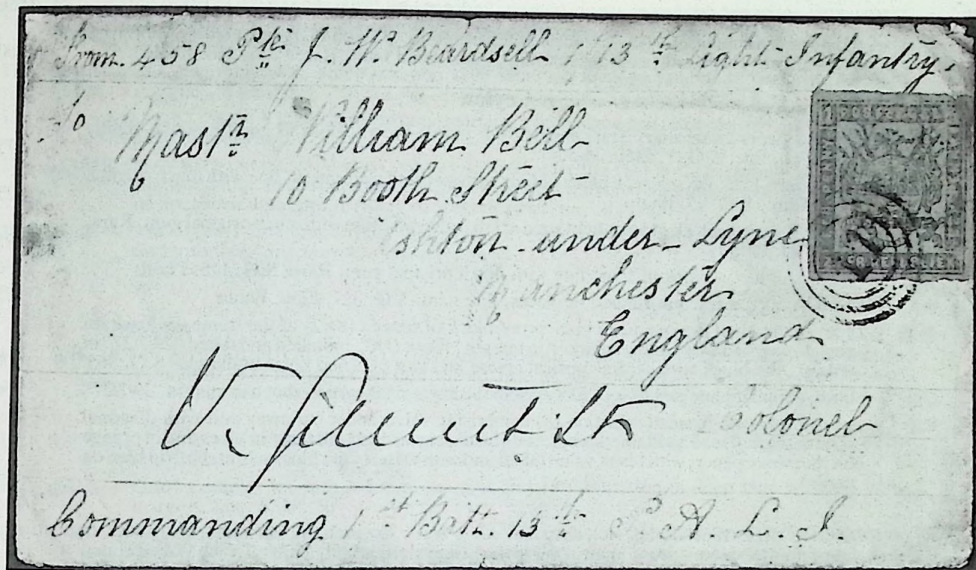 From. 458 Pte J. W. Beardsell 1/13th Light Infantry.
To
Mastr William Bell
10 Booth Street
Ashton-under-Lyne
Manchester
England
Colonel
Commanding 1st Batt. 13th P. A. L. I.